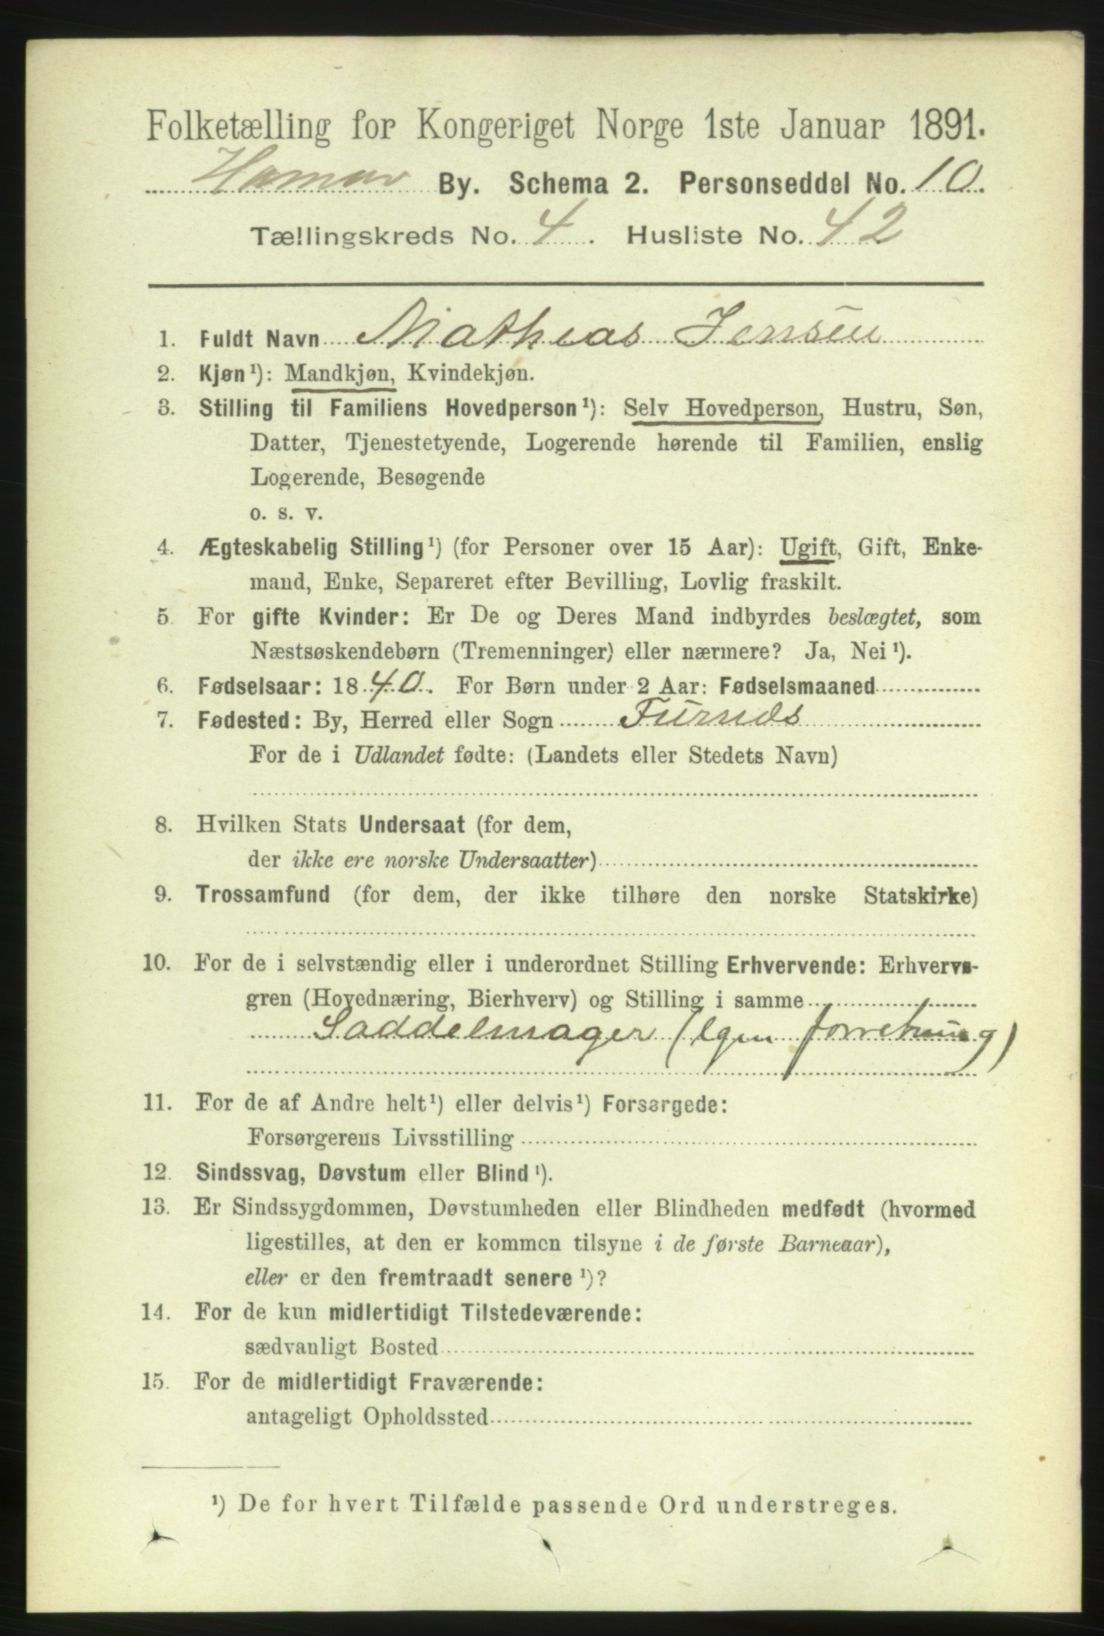 Folketælling for Kongeriget Norge 1ste Januar 1891.
Hamar By. Schema 2. Personseddel No. 10.
Tællingskreds No. 4. Husliste No. 42
1. Fuldt Navn Mathias Jensen
2. Kjøn¹): Mandkjøn, Kvindekjøn.
3. Stilling til Familiens Hovedperson¹): Selv Hovedperson, Hustru, Søn,
Datter, Tjenestetyende, Logerende hørende til Familien, enslig
Logerende, Besøgende
o. s. v.
4. Ægteskabelig Stilling¹) (for Personer over 15 Aar): Ugift, Gift, Enke-
mand, Enke, Separeret efter Bevilling, Lovlig fraskilt.
5 For gifte Kvinder: Er De og Deres Mand indbyrdes beslægtet, som
Næstsøskendebørn (Tremenninger) eller nærmere? Ja, Nei¹).
6. Fødselsaar: 1840. For Børn under 2 Aar: Fødselsmaaned
7. Fødested: By, Herred eller Sogn Furnæs
For de i Udlandet fødte: (Landets eller Stedets Navn)
8. Hvilken Stats Undersaat (for dem,
der ikke ere norske Undersaatter)
9. Trossamfund (for dem, der ikke tilhøre den norske Statskirke)
10. For de i selvstændig eller i underordnet Stilling Erhvervende: Erhvervs-
gren (Hovednæring, Bierhverv) og Stilling i samme
Saddelmager (egen forretning)
11. For de af Andre helt¹) eller delvis¹) Forsørgede:
Forsørgerens Livsstilling
12. Sindssvag, Døvstum eller Blind¹).
13. Er Sindssygdommen, Døvstumheden eller Blindheden medfødt (hvormed
ligestilles, at den er kommen tilsyne i de første Barneaar),
eller er den fremtraadt senere¹)?
14. For de kun midlertidigt Tilstedeværende:
sædvanligt Bosted
15. For de midlertidigt Fraværende:
antageligt Opholdssted
¹) De for hvert Tilfælde passende Ord understreges.